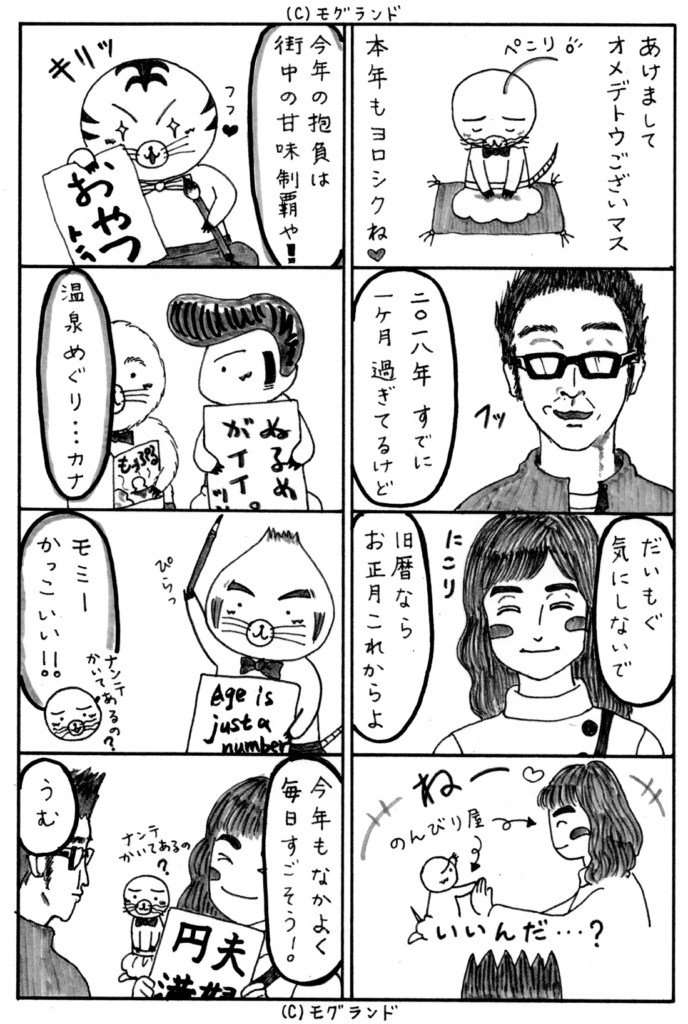 (C)モグランド
あけまして
オメデトウございマス
本年もヨロシクね♥
ぺこり
二〇一八年 すでに
一ヶ月過ぎてるけど
フッ
だいもぐ
気にしないで
旧暦なら
お正月これからよ
にこり
ねー♡
のんびり屋
いいんだ…?
今年の抱負は
街中の甘味制覇や!!
フフ♥
キリッ
おやつ
トラ
温泉めぐり…カナ
ぬるめ
がイイ。
モミー
かっこいい!!
ぴらっ
Age is
just a
number
ナンテ
かいてあるの?
今年もなかよく
毎日すごそう!。
ナンテ
かいてあるの
?
うむ
夫婦
円満
(C)モグランド